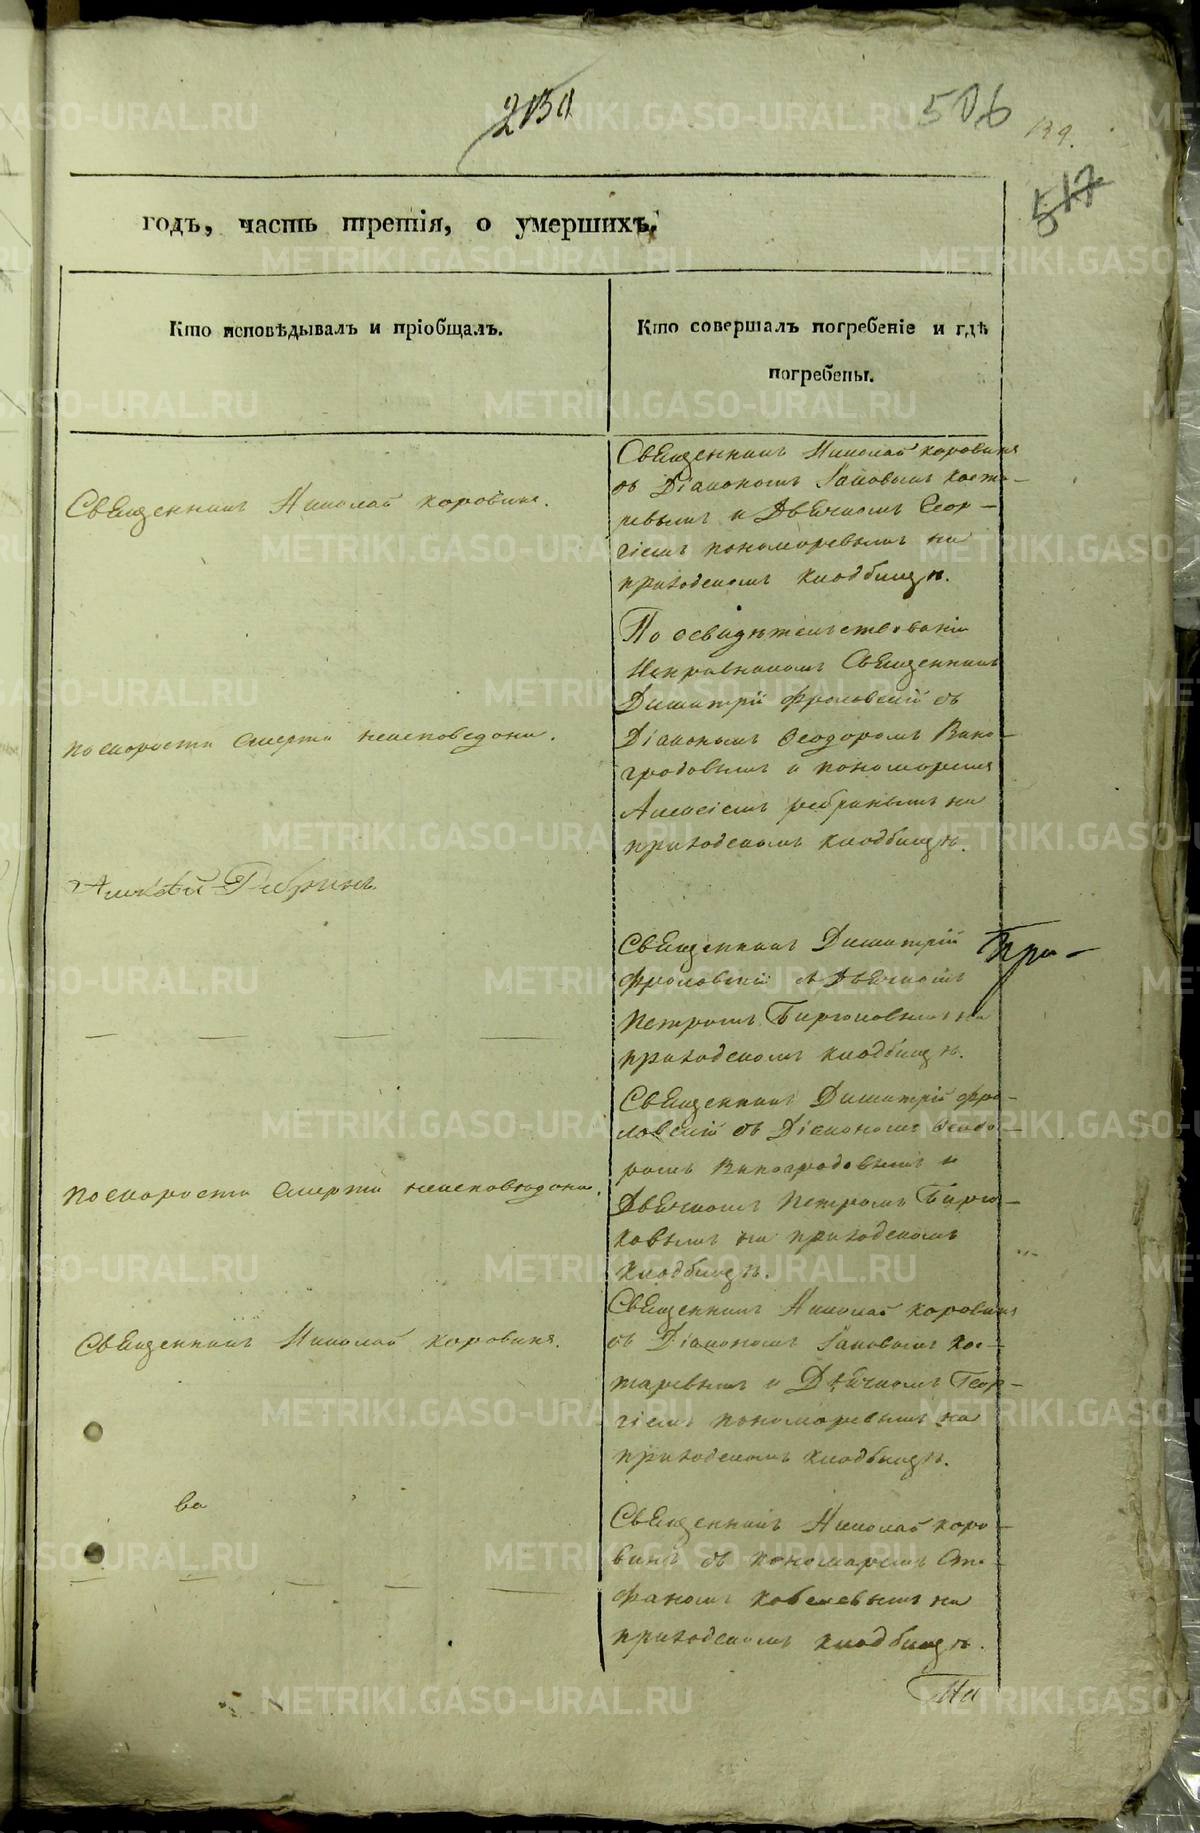 506
139.
517
годъ, часть третія, о умершихъ.
Кто исповѣдывалъ и пріобщалъ.
Кто совершалъ погребеніе и гдѣ
погребены.
Священникъ Николай Коровинъ.
Священникъ Николай Коровинъ
съ Діакономъ Іаковомъ Коста-
ревымъ и Дьячкомъ Геор-
гіемъ пономоревымъ на
приходскомъ кладбищѣ.
по скорости смерти неисповедони.
По освидѣтельствованіи
Исправникомъ Священникъ
Димитрій Фроловскій съ
Діакономъ Ѳеодоромъ Вино-
градовымъ и пономоремъ
Алексіемъ ребринымъ на
приходскомъ кладбищѣ.
Алексѣй Ребринъ
Священникъ Димитрій
Фроловскій съ Дьячкомъ
Петромъ Бирюковымъ на
приходскомъ кладбищѣ.
При-
по скорости смерти неисповѣдони.
Священникъ Димитрій Фро-
ловскій съ Діакономъ Ѳеодо-
ромъ Виноградовымъ и
Дьячкомъ Петромъ Бирю-
ковымъ на приходскомъ
кладбищѣ.
Священникъ Николай Коровинъ.
Священникъ Николай Коровинъ
съ Діакономъ Іаковомъ Кос-
таревымъ и Дьячкомъ Геор-
гіемъ пономоревымъ на
приходскомъ кладбищѣ.
ва
Священникъ Николай Коро-
винъ съ пономаремъ Сте-
фаномъ Ковелевымъ на
приходскомъ кладбищѣ.
METRIKI.GASO-URAL.RU